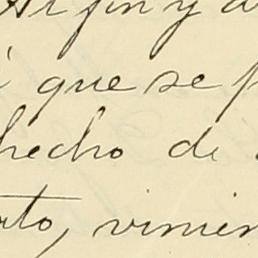 Al fin y a
que se p
hecho de
to, vinier